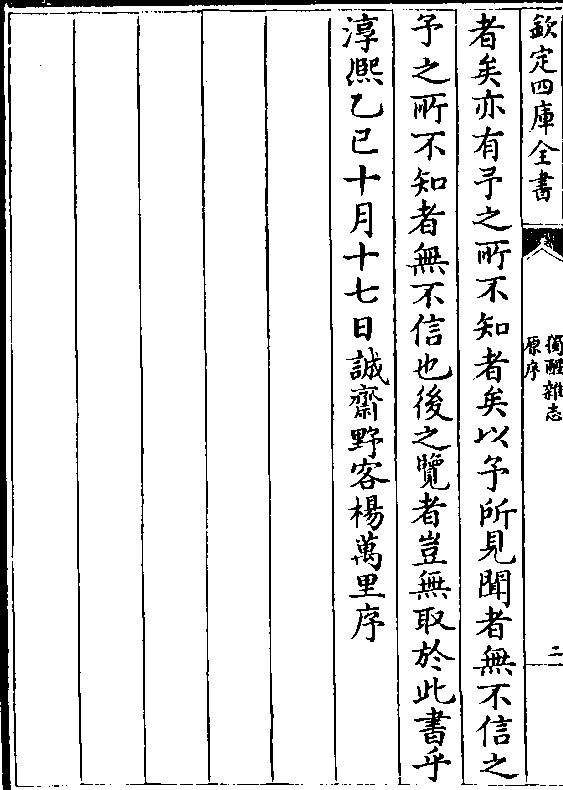 欽定四庫全書
獨醒雜志
原序
二
者矣亦有予之所不知者矣以予所見聞者無不信之
予之所不知者無不信也後之覽者豈無取於此書乎
淳熙乙已十月十七日誠齋野客楊萬里序